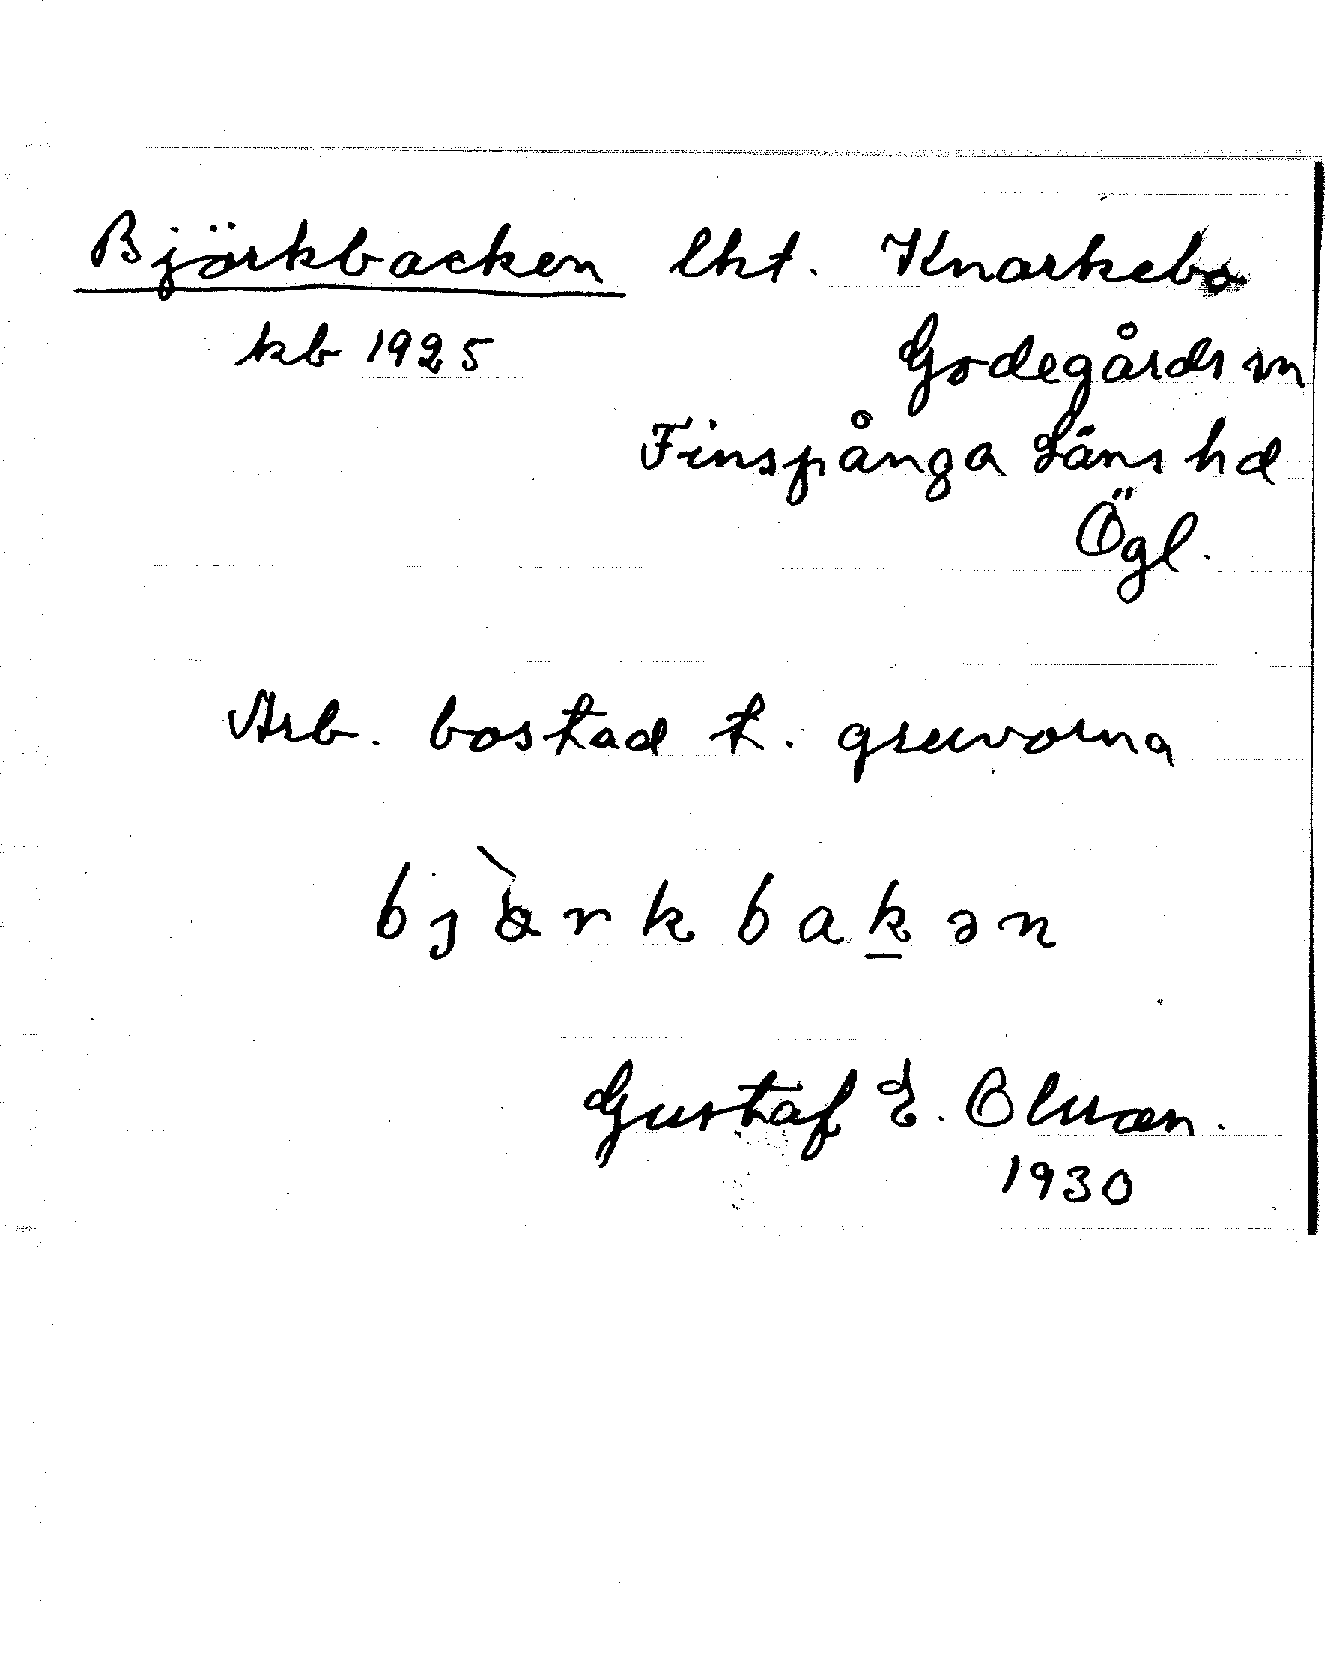 Björkbacken lht. Knarkebo
kb 1925 Godegårds sn
Finspånga Läns hd
Ögl.
Arb. bostad t. gruvorna
bjɔ̀rkbak̲ən
Gustaf E. Olsson.
1930